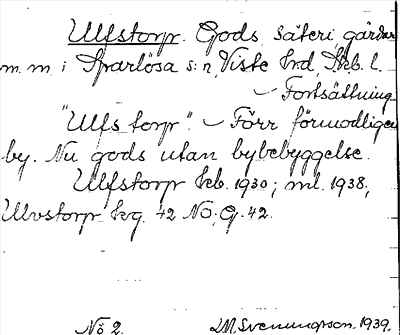 Ulfstorp. Gods, säteri, gårdar
m.m. i Sparlösa s:n, Viste hrd, Skb. l.
– Fortsättning
"Ulfs torp". – Förr förmodligen
by. Nu gods utan bybebyggelse.
Ulfstorp kb. 1930; ml. 1938;
Ulvstorp kvg. 42 NO, G. 42.
Nö 2. M. Svenungson. 1939.